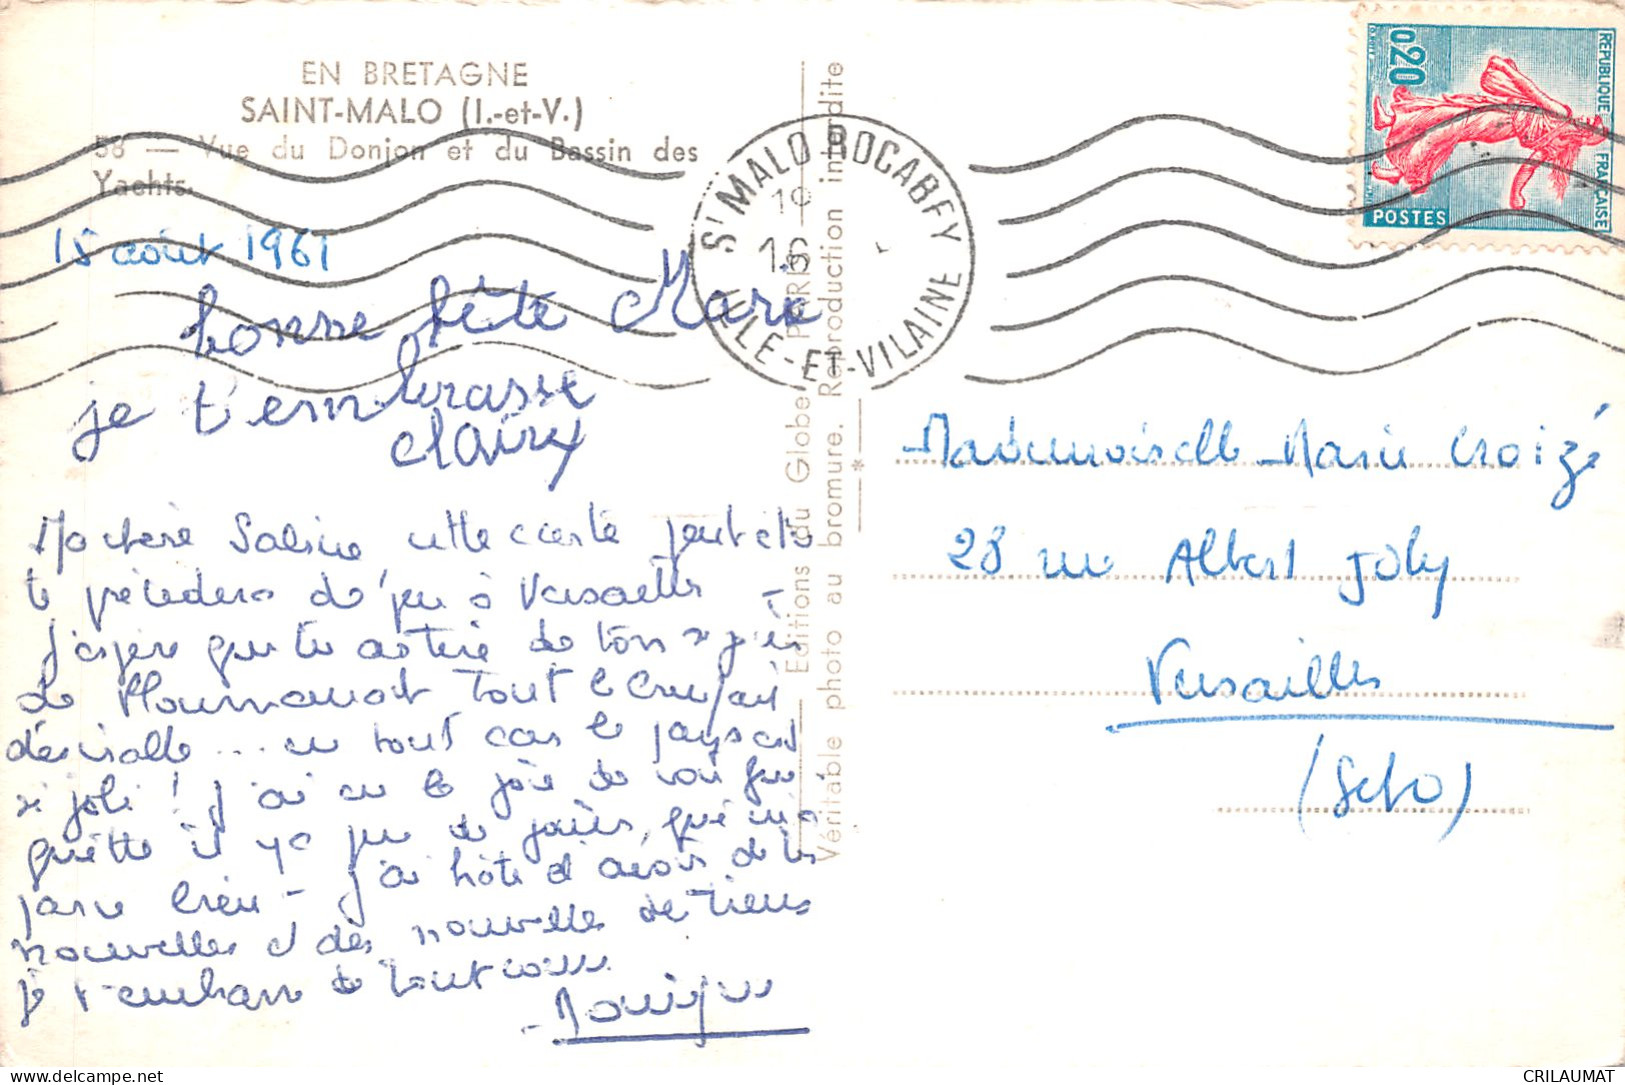 EN BRETAGNE
SAINT-MALO (I.-et-V.)
58 — Vue du Donjon et du Bassin des
Yachts.
15 août 1961
bonne fête Marie
je t'embrasse
claire
Ma chère Sabine cette carte peut être
te précèdera de peu à Versailles
J'espère que tu as tiré de ton séjour
de Ploumanach tout le
désirable ... en tout cas le pays est
si joli ! J'ai eu la joie de voir
il y a peu de jours, que
bien - J'ai hâte d'avoir de tes
nouvelles et des nouvelles de
Je t'embrasse de tout cœur
Monique
Editions du Globe PARIS
Véritable photo au bromure. Reproduction interdite
*
ST MALO ROCABEY
ILLE-ET-VILAINE
16
REPUBLIQUE FRANÇAISE
0,20
POSTES
Mademoiselle Marie Croizé
28 rue Albert Joly
Versailles
(S et O)
CRILAUMAT